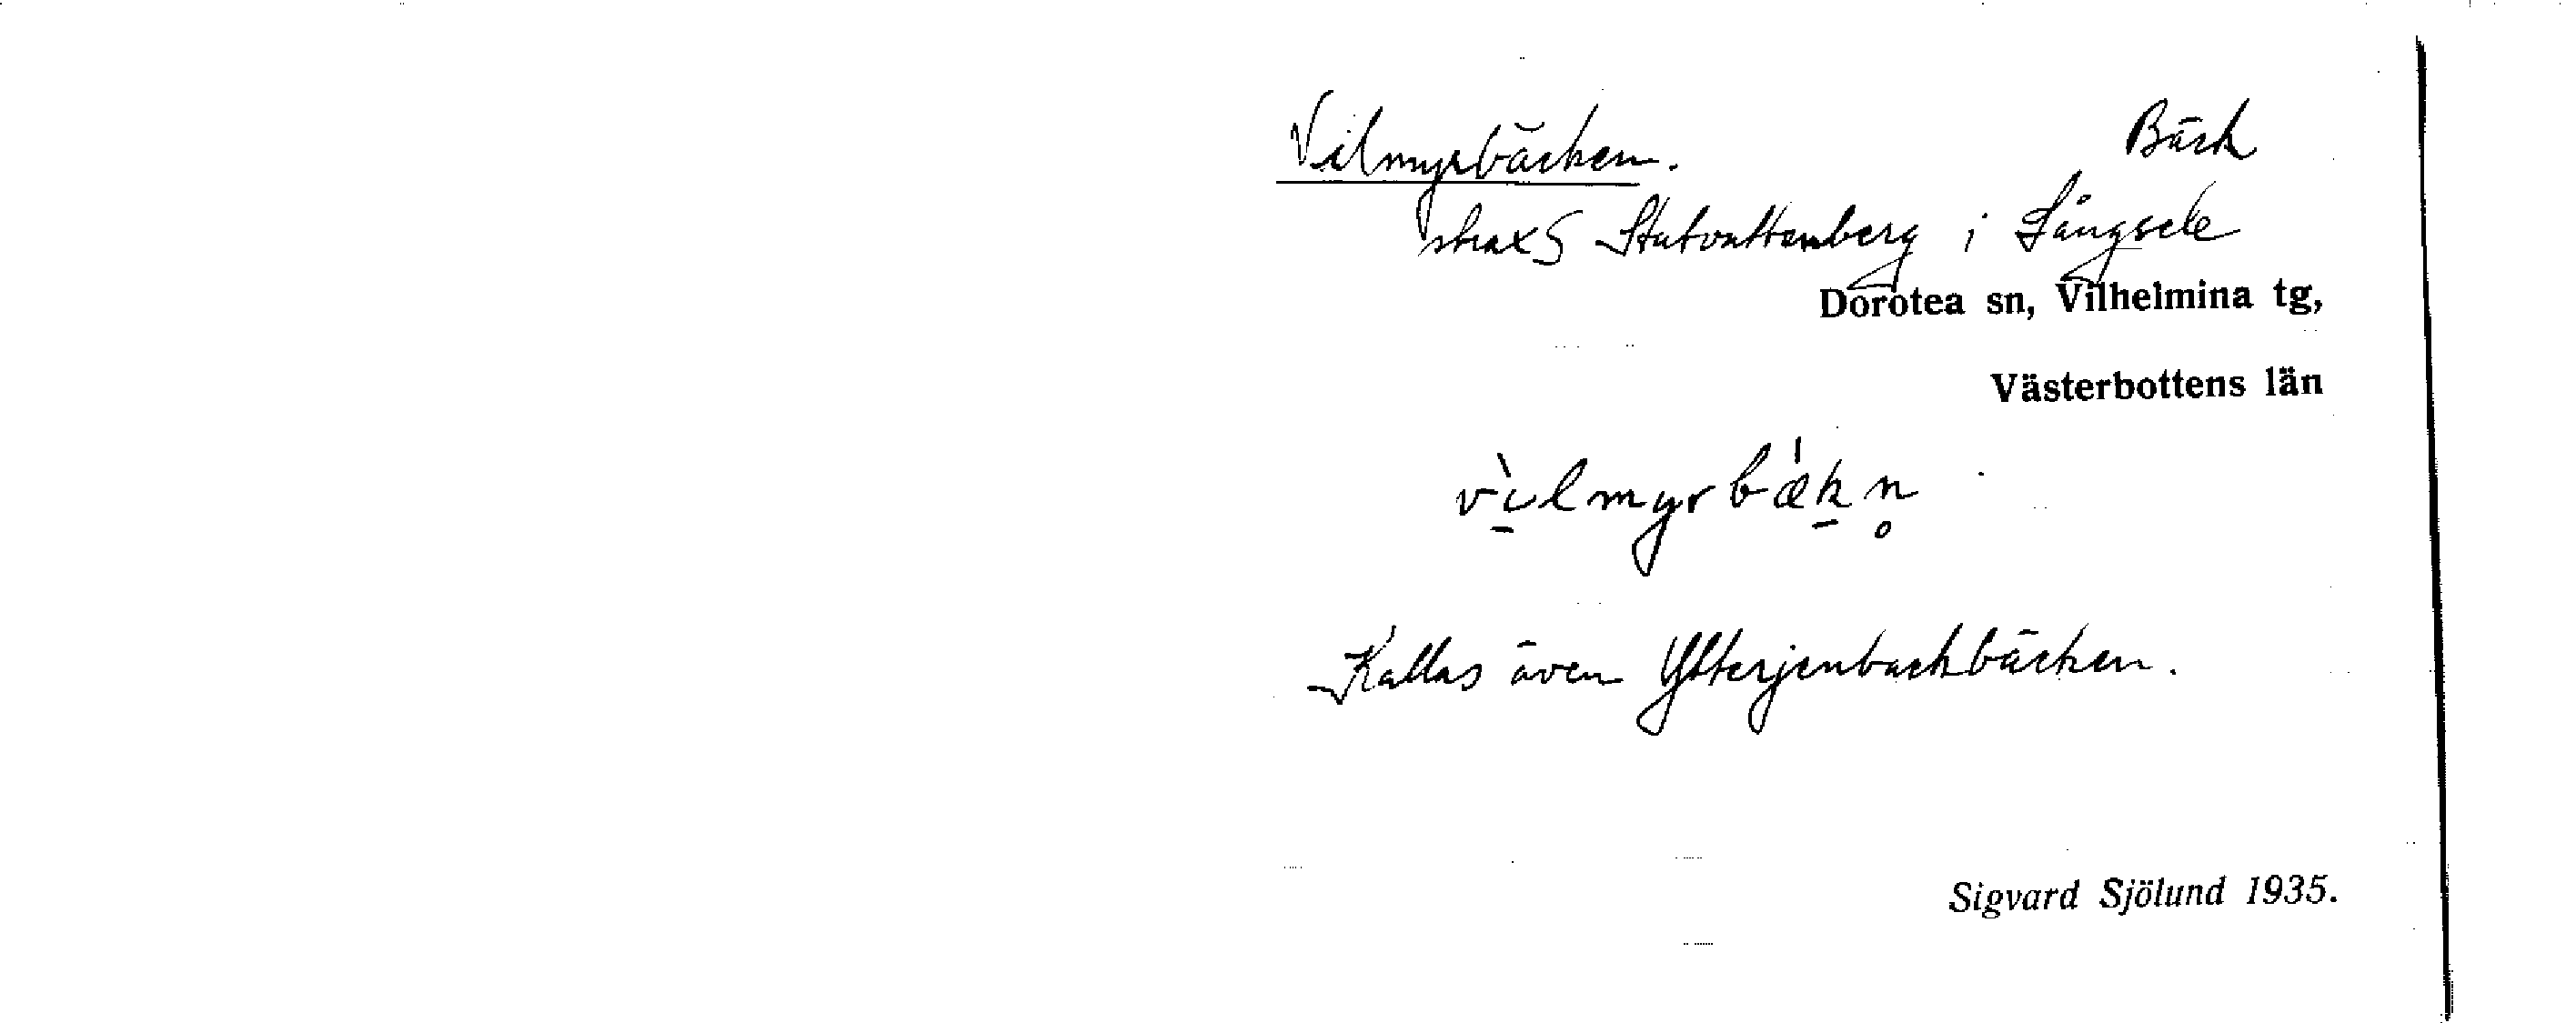 Vilmyrbäcken. Bäck
strax S Stutvattenberg i Långsele
Dorotea sn, Vilhelmina tg,
Västerbottens län
v̀ilmyrbǽkn̥
Kallas även Ytterjenbackbäcken.
Sigvard Sjölund 1935.